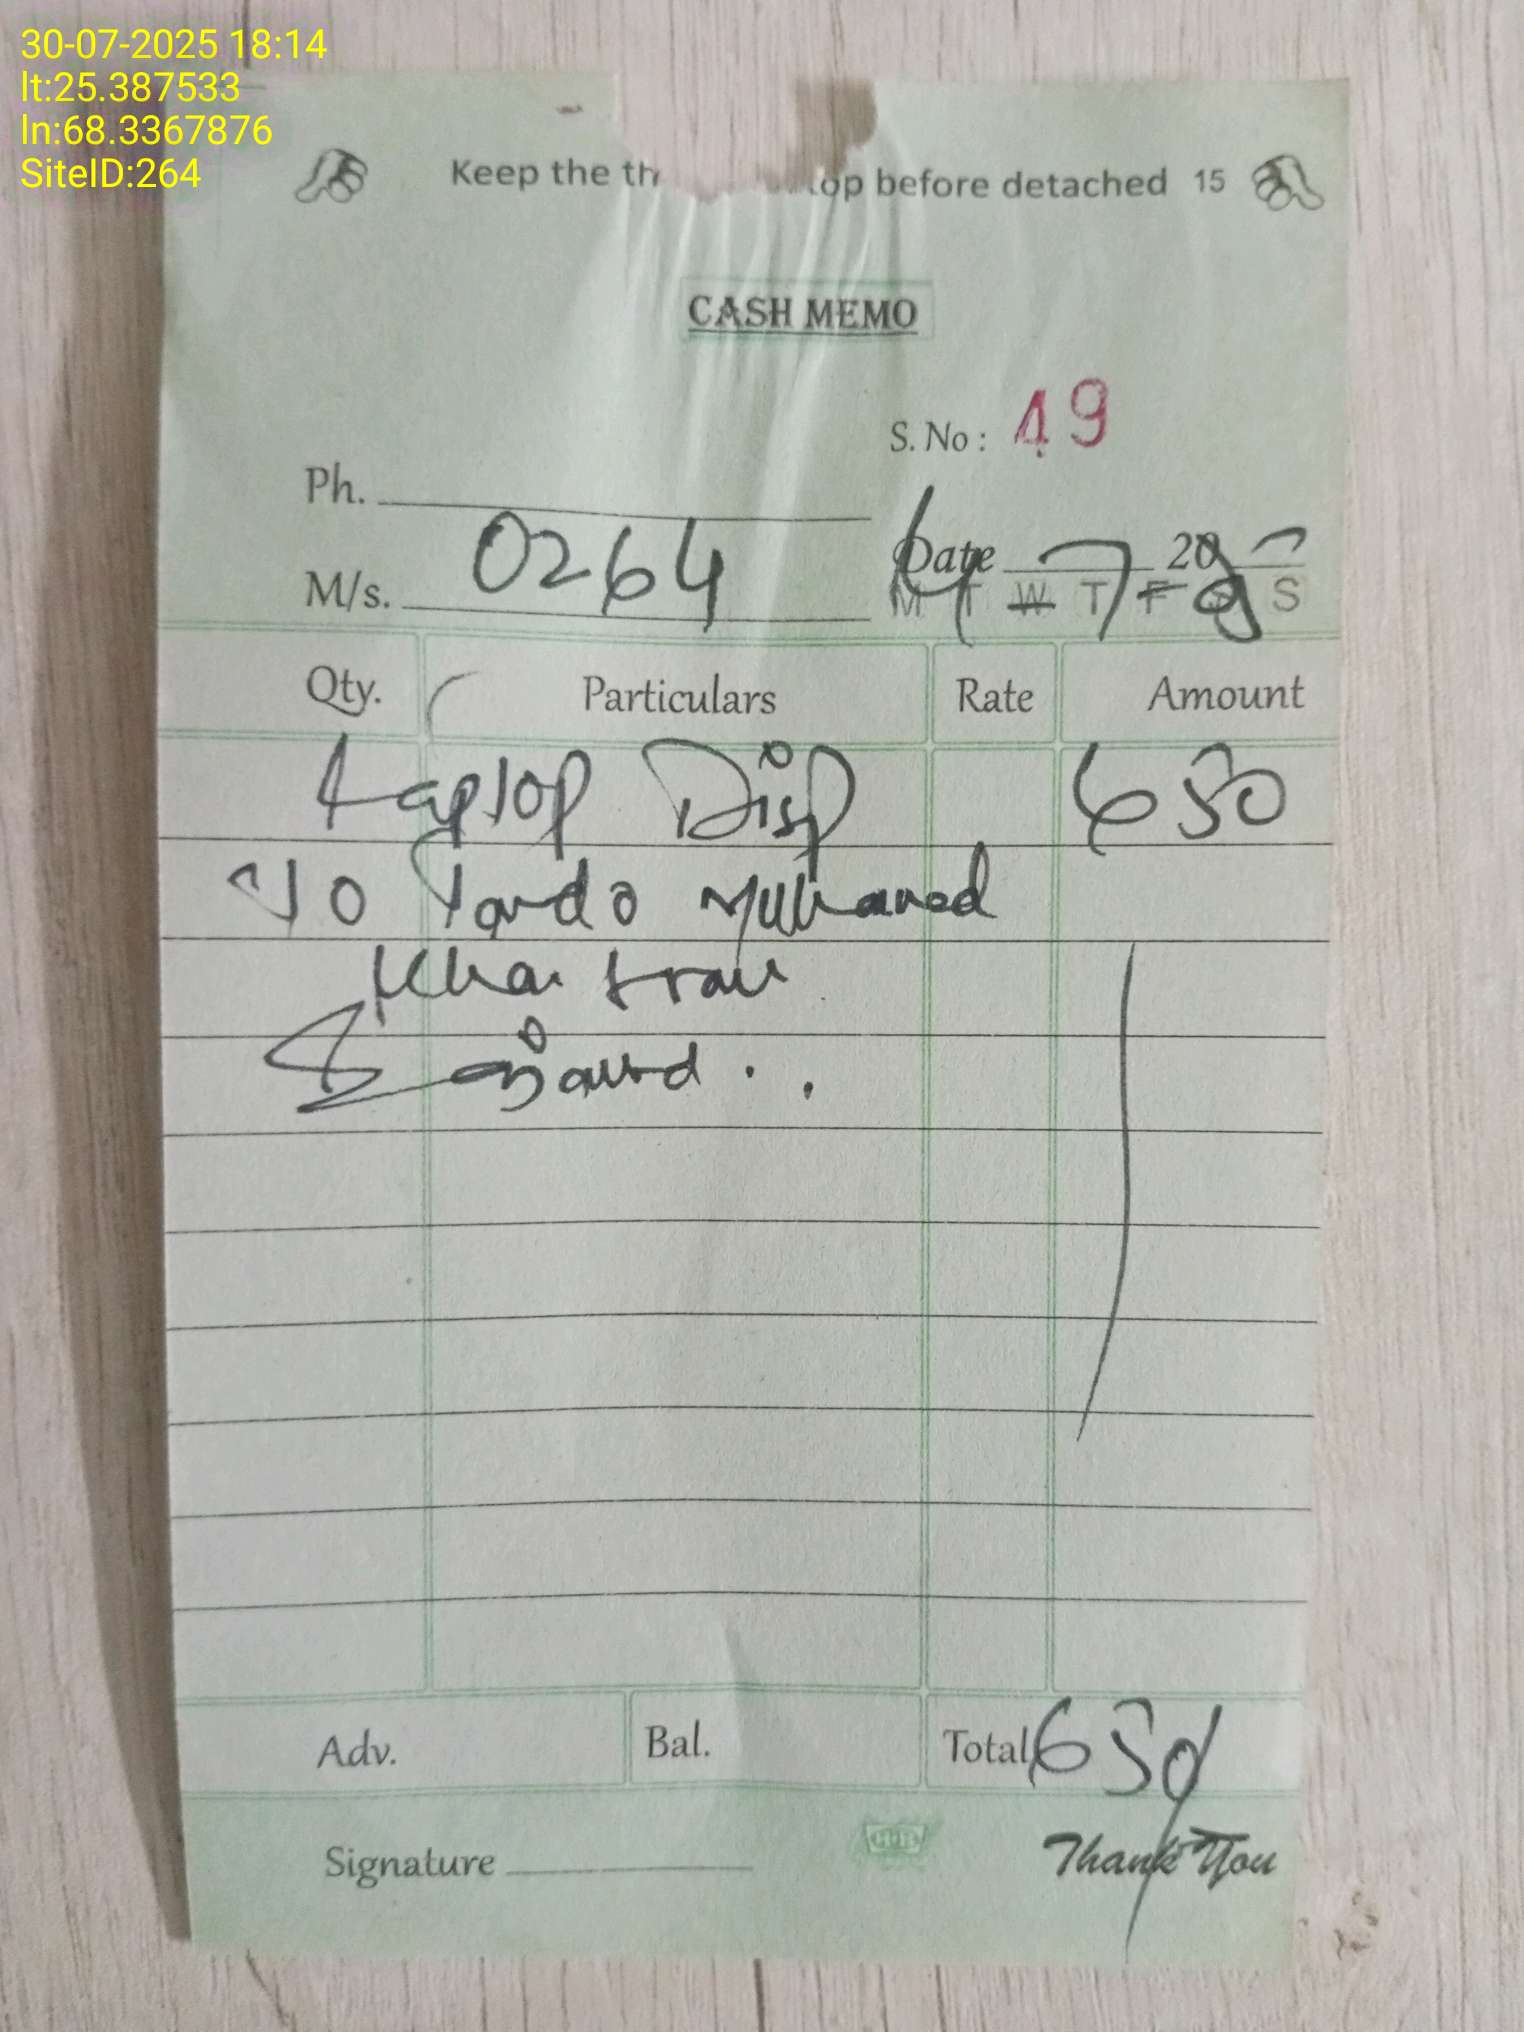 30-07-2025 18:14
lt:25.387533
ln:68.3367876
SiteID:264
Keep the th op before detached 15
CASH MEMO
S. No: 49
Ph.
M/s. 0264
Date 20
M T W T F S S
Qty. Particulars Rate Amount
Laptop Disp 650
To Tando Muhamed
Khan from
Total 650
Adv. Bal.
Signature Thank You